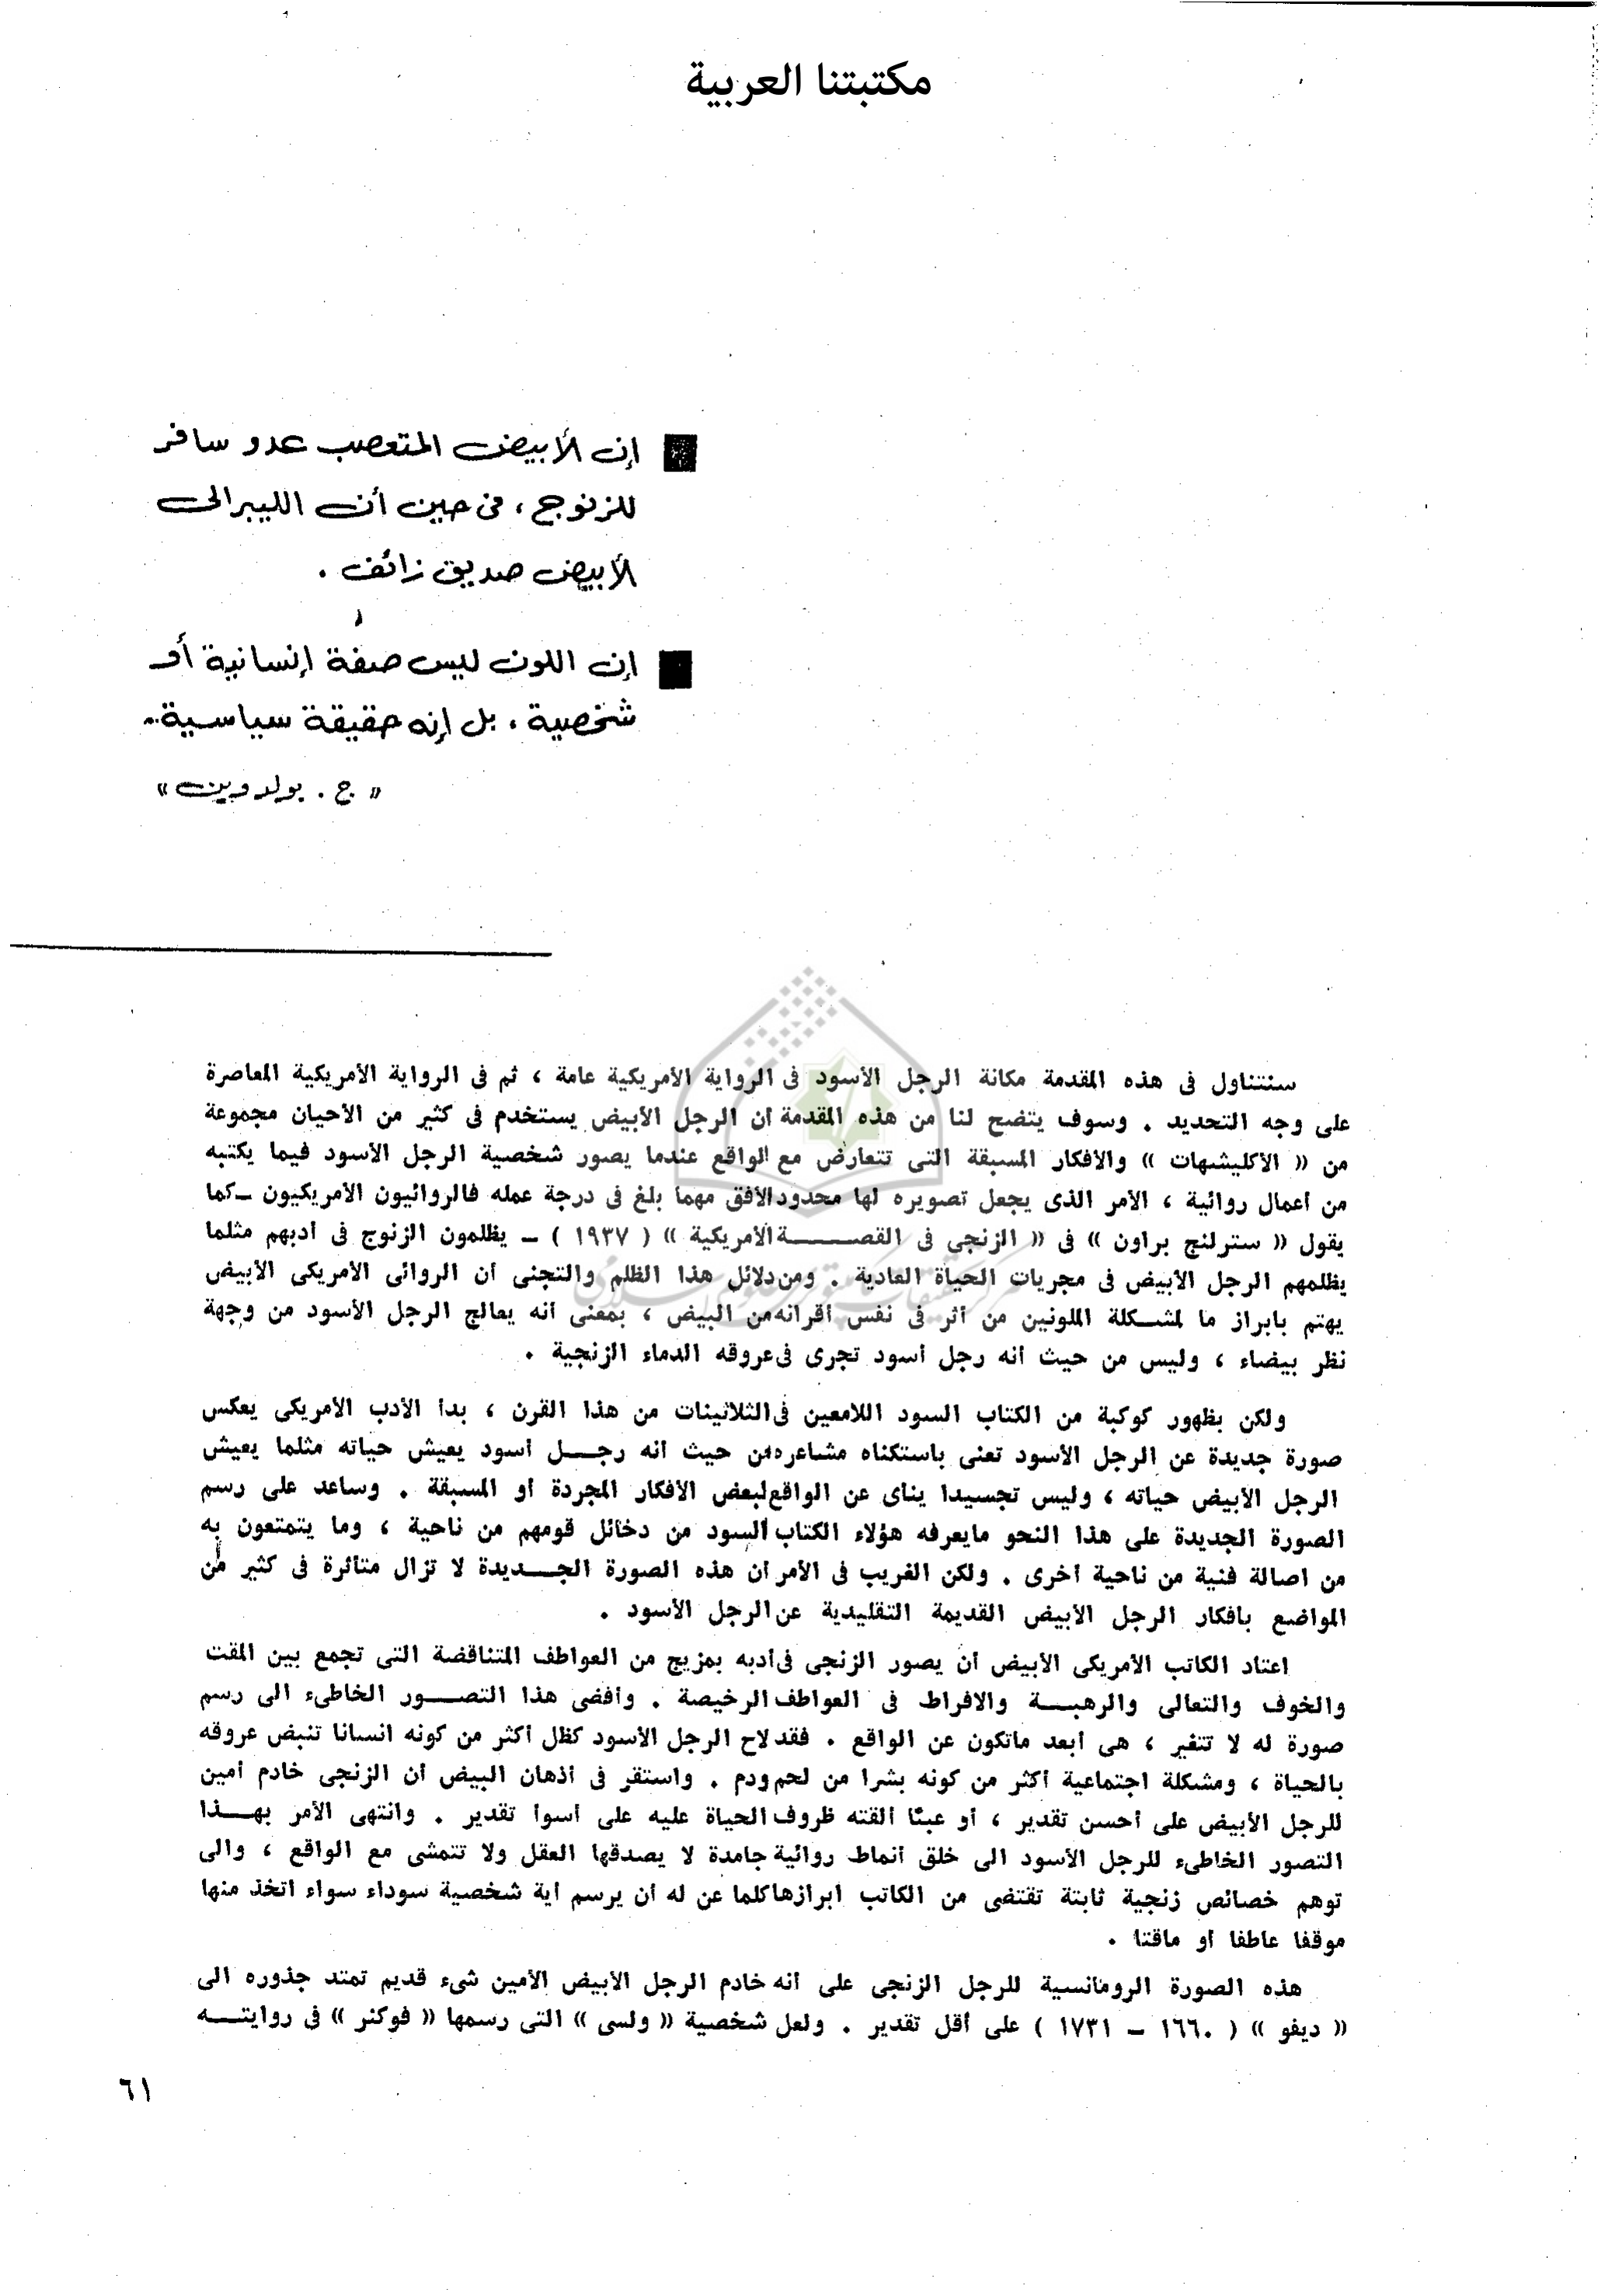 مكتبتنا العربية
إن الأبيض المتعصب عدو سافر
للزنوج ، فى حين أن الليبرالى
الأبيض صديق زائف .
إن اللون ليس صفة إنسانية أو
شخصية ، بل إنه حقيقة سياسية ..
« ج . بولدوين »
سنتناول فى هذه المقدمة مكانة الرجل الأسود فى الرواية الأمريكية عامة ، ثم فى الرواية الأمريكية المعاصرة
على وجه التحديد . وسوف يتضح لنا من هذه المقدمة أن الرجل الأبيض يستخدم فى كثير من الأحيان مجموعة
من « الأكليشهات » والأفكار المسبقة التى تتعارض مع الواقع عندما يصور شخصية الرجل الأسود فيما يكتبه
من أعمال روائية ، الأمر الذى يجعل تصويره لها محدود الأفق مهما بلغ فى درجة عمله فالروائيون الأمريكيون ــ كما
يقول « سترلنج براون » فى « الزنجى فى القصــة الأمريكية » ( ١٩٣٧ ) ــ يظلمون الزنوج فى أدبهم مثلما
يظلمهم الرجل الأبيض فى مجريات الحياة العادية . ومن دلائل هذا الظلم والتجنى أن الروائى الأمريكى الأبيض
يهتم بابراز ما لمشــكلة الملونين من أثر فى نفس أقرانه من البيض ، بمعنى أنه يعالج الرجل الأسود من وجهة
نظر بيضاء ، وليس من حيث أنه رجل أسود تجرى فى عروقه الدماء الزنجية .
ولكن بظهور كوكبة من الكتاب السود اللامعين فى الثلاثينات من هذا القرن ، بدأ الأدب الأمريكى يعكس
صورة جديدة عن الرجل الأسود تعنى باستكناه مشاعره من حيث أنه رجــل أسود يعيش حياته مثلما يعيش
الرجل الأبيض حياته ، وليس تجسيدا ينأى عن الواقع لبعض الأفكار المجردة أو المسبقة . وساعد على رسم
الصورة الجديدة على هذا النحو مايعرفه هؤلاء الكتاب السود من دخائل قومهم من ناحية ، وما يتمتعون به
من أصالة فنية من ناحية أخرى . ولكن الغريب فى الأمر أن هذه الصورة الجــديدة لا تزال متأثرة فى كثير من
المواضع بأفكار الرجل الأبيض القديمة التقليدية عن الرجل الأسود .
اعتاد الكاتب الأمريكى الأبيض أن يصور الزنجى فى أدبه بمزيج من العواطف المتناقضة التى تجمع بين المقت
والخوف والتعالى والرهبــة والافراط فى العواطف الرخيصة . وأفضى هذا التصــور الخاطىء الى رسم
صورة له لا تتغير ، هى أبعد ماتكون عن الواقع . فقد لاح الرجل الأسود كظل أكثر من كونه انسانا تنبض عروقه
بالحياة ، ومشكلة اجتماعية أكثر من كونه بشرا من لحم ودم . واستقر فى أذهان البيض أن الزنجى خادم أمين
للرجل الأبيض على أحسن تقدير ، أو عبئا ألقته ظروف الحياة عليه على أسوأ تقدير . وانتهى الأمر بهــذا
التصور الخاطىء للرجل الأسود الى خلق أنماط روائية جامدة لا يصدقها العقل ولا تتمشى مع الواقع ، والى
توهم خصائص زنجية ثابتة تقتضى من الكاتب ابرازها كلما عن له أن يرسم أية شخصية سوداء سواء اتخذ منها
موقفا عاطفا أو ماقتا .
هذه الصورة الرومانسية للرجل الزنجى على أنه خادم الرجل الأبيض الأمين شىء قديم تمتد جذوره الى
« ديفو » ( ١٦٦٠ ــ ١٧٣١ ) على أقل تقدير . ولعل شخصية « ولسى » التى رسمها « فوكنر » فى روايتــه
٦١